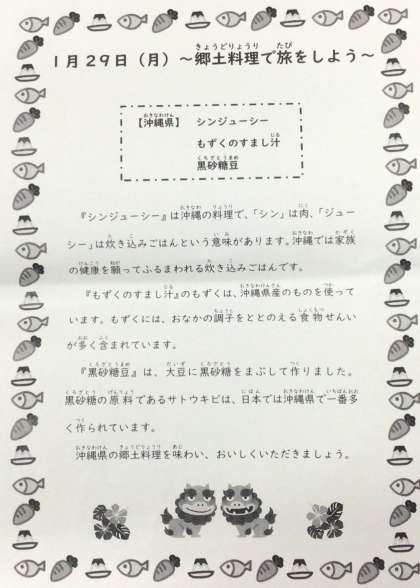 1月29日（月）～郷土料理で旅をしよう～
【沖縄県】 シンジューシー
もずくのすまし汁
黒砂糖豆
『シンジューシー』は沖縄の料理で、「シン」は肉、「ジュー
シー」は炊き込みごはんという意味があります。沖縄では家族
の健康を願ってふるまわれる炊き込みごはんです。
『もずくのすまし汁』のもずくは、沖縄県産のものを使って
います。もずくには、おなかの調子をととのえる食物せんい
が多く含まれています。
『黒砂糖豆』は、大豆に黒砂糖をまぶして作りました。
黒砂糖の原料であるサトウキビは、日本では沖縄県で一番多
く作られています。
沖縄県の郷土料理を味わい、おいしくいただきましょう。